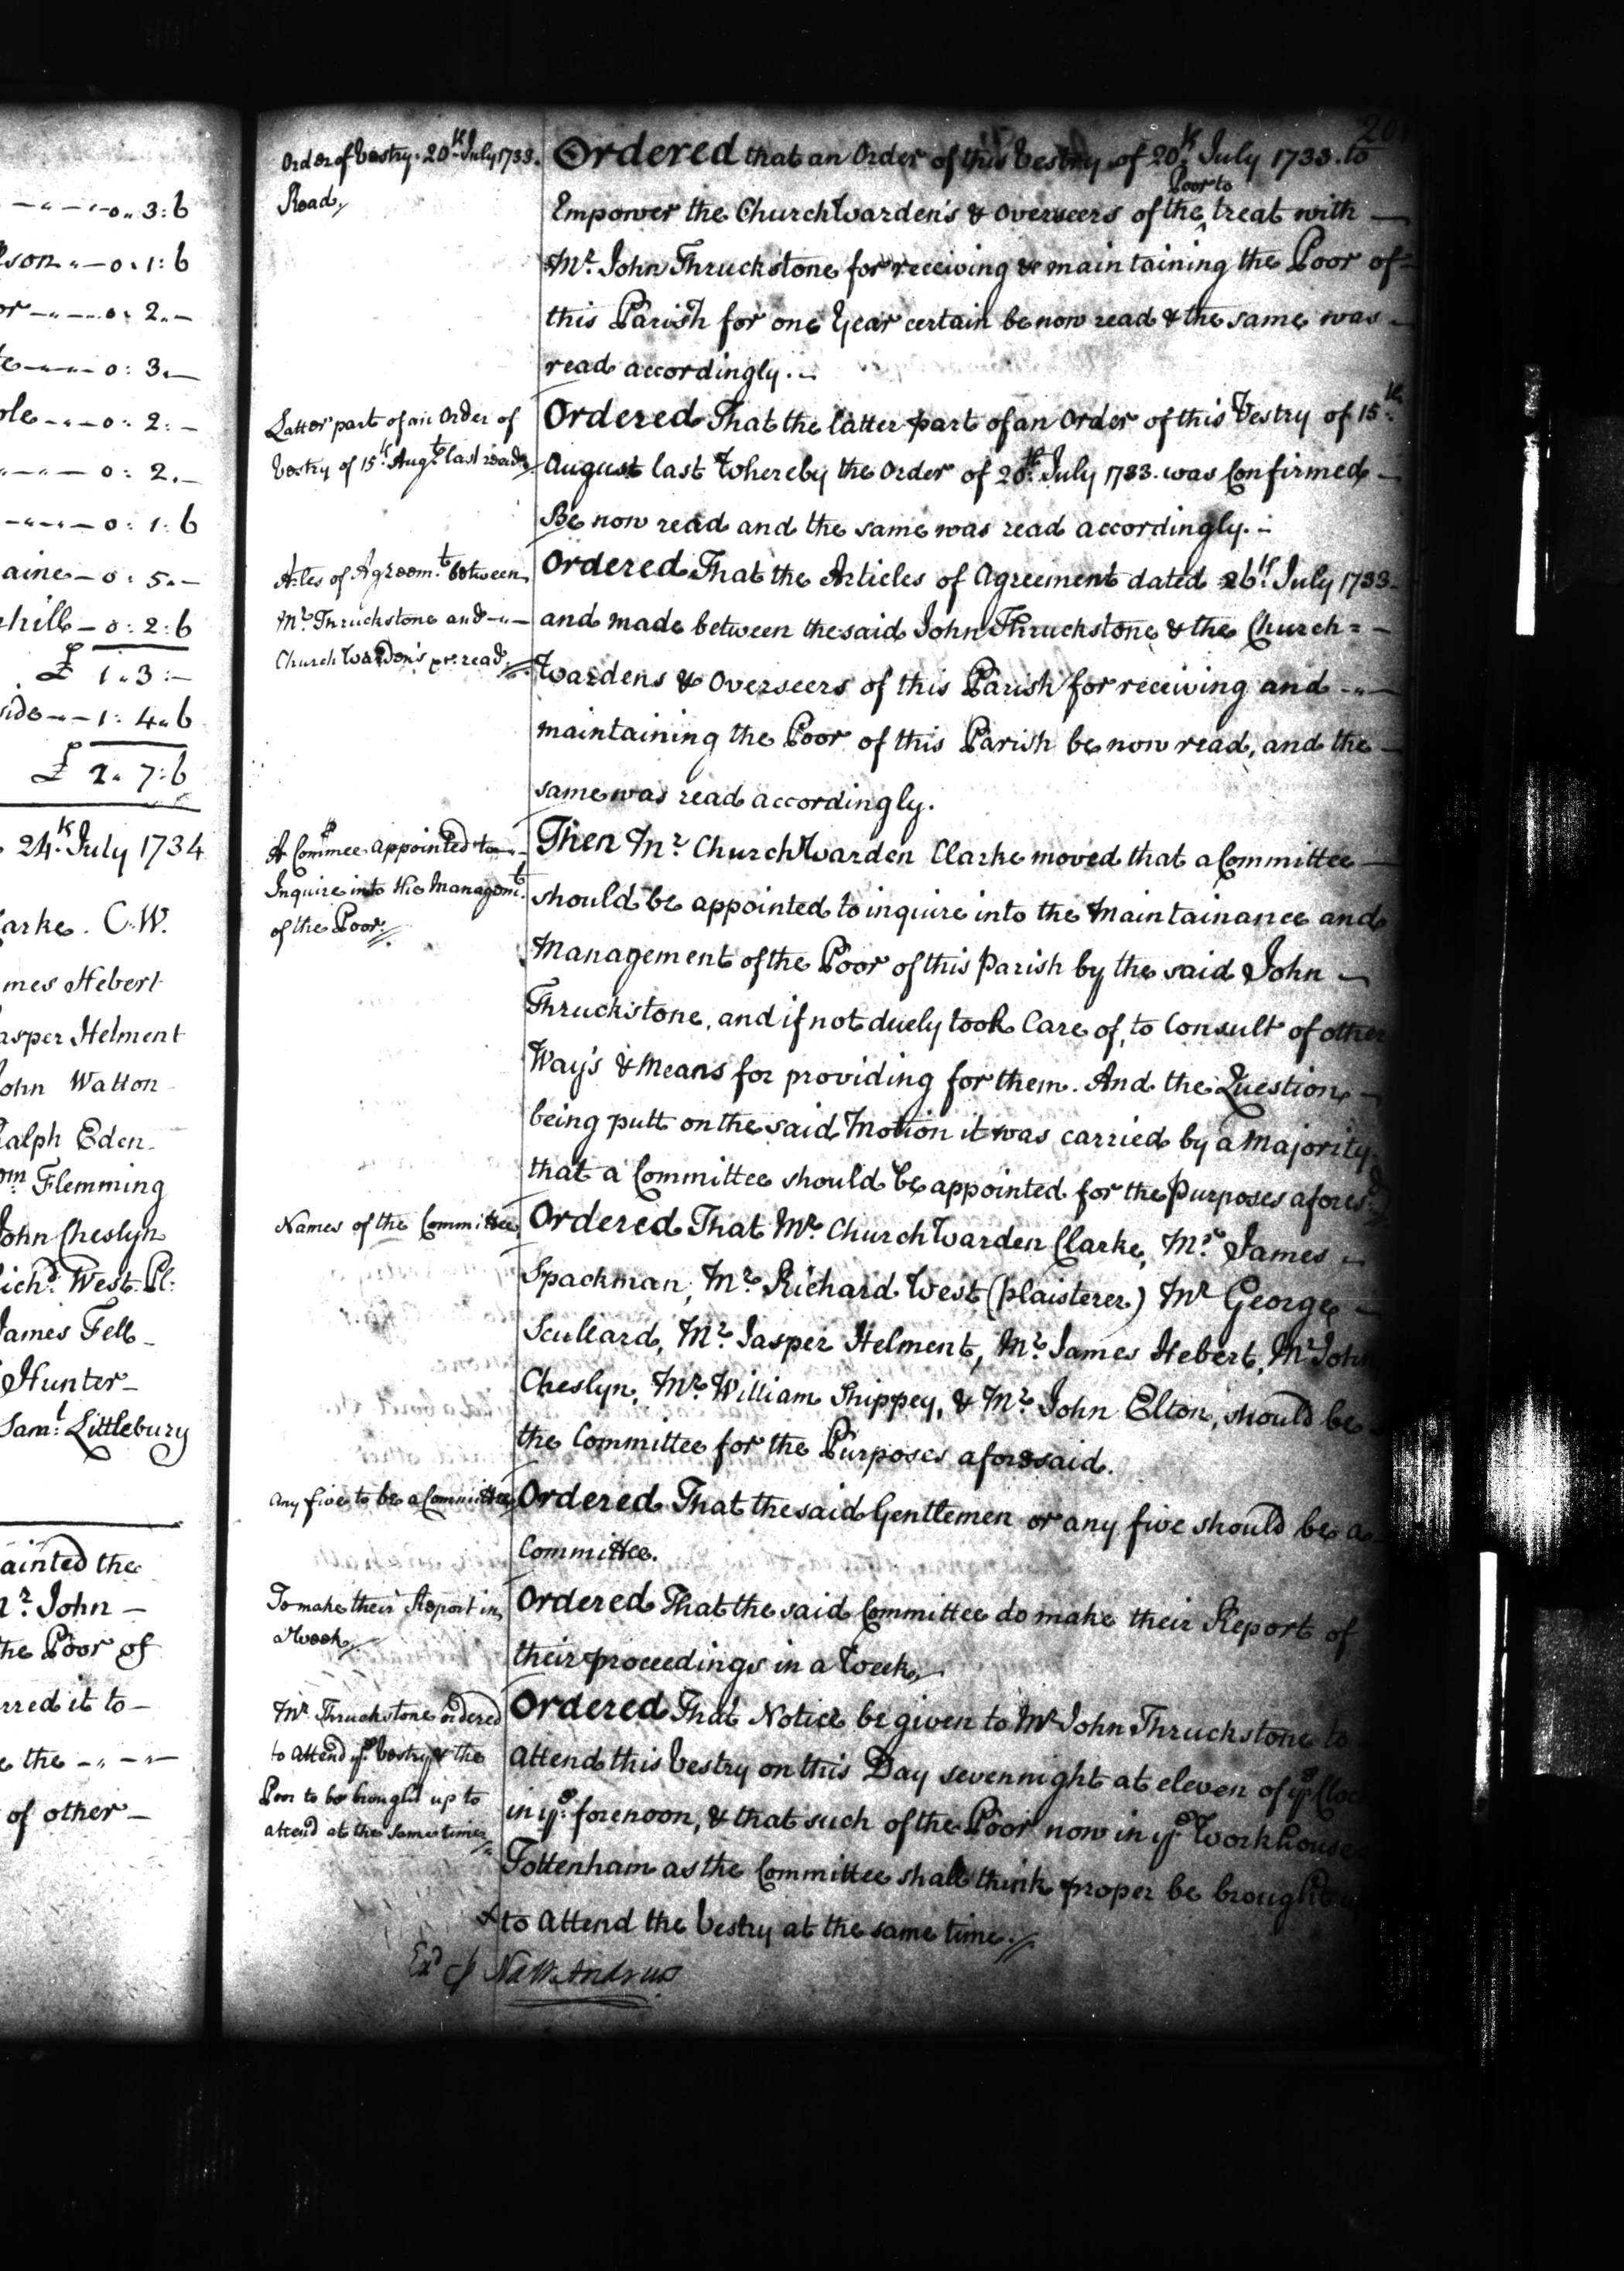 0,, 3:6
son,,—0,,1:6
or—,,—0,, 2,,—
0: 3,—
ole—,,—0: 2:—
—,,—0: 2,—
—,,—0:1:6
aine—0:5,,—
hill—0:2:6
£ 1,,3:—
side—,,—1:4,,6
£ 2,,7:6
24th July 1734
arke. C.W.
mes Hebert
asper Helment
ohn Watton
Ralph Eden
Wm Flemming
John Cheslyn
Richd West Pl:
James Fell
Hunter
Saml Littlebury
ainted the
Mr John —
the Poor of
rred it to —
e the —,,—
of other —
20
Order of Vestry. 20th July 1733.
Read
Ordered that an Order of this Vestry of 20th July 1733. to
Empower the ChurchWarden's & Overseers of the ^Poor to treat with —
Mr John Thruckstone for receiving & maintaining the Poor of
this Parish for one Year certain be now read & the same was —
read accordingly.
Latter part of an Order of
Vestry of 15th Augt last read
Ordered That the latter part of an Order of this Vestry of 15th
August last Whereby the Order of 20th July 1733. was Confirmed —
Be now read and the same was read accordingly.
Artles of Agreemt between
Mr Thruckstone and —,,—
Church Warden's pr. read
Ordered That the Articles of Agreement dated 26th July 1733
and made between the said John Thruckstone & the Church= —
Wardens & Overseers of this Parish for receiving and —,,—
maintaining the Poor of this Parish be now read, and the —
same was read accordingly.
A Commee appointed to
Inquire into the Managemt
of the Poor.
Then Mr ChurchWarden Clarke moved that a Committee —
should be appointed to inquire into the Maintainance and
Management of the Poor of this Parish by the said John —
Thruckstone, and if not duely took Care of, to Consult of other
Way's & Means for providing for them. And the Question —
being putt on the said Motion it was carried by a Majority
that a Committee should be appointed for the Purposes aforesd
Names of the Committee
Ordered That Mr ChurchWarden Clarke, Mr James —
Spackman, Mr Richard West (plaisterer) Mr George —
Scullard, Mr Jasper Helment, Mr James Hebert, Mr John
Cheslyn, Mr William Shippey, & Mr John Elton, should be
the Committee for the Purposes aforesaid.
Any five to be a Committee
Ordered That the said Gentlemen or any five should be a
Committee.
To make their Report in
a Week
Ordered That the said Committee do make their Report of
their proceedings in a Week
Mr Thruckstone ordered
to attend ye Vestry & the
Poor to be brought up to
attend at the same time
Ordered That Notice be given to Mr John Thruckstone to
Attend this Vestry on this Day sevennight at eleven of ye Cloc
in ye forenoon, & that such of the Poor now in ye Workhouse
Tottenham as the Committee shall think proper be brought
to Attend the Vestry at the same time.
Exd